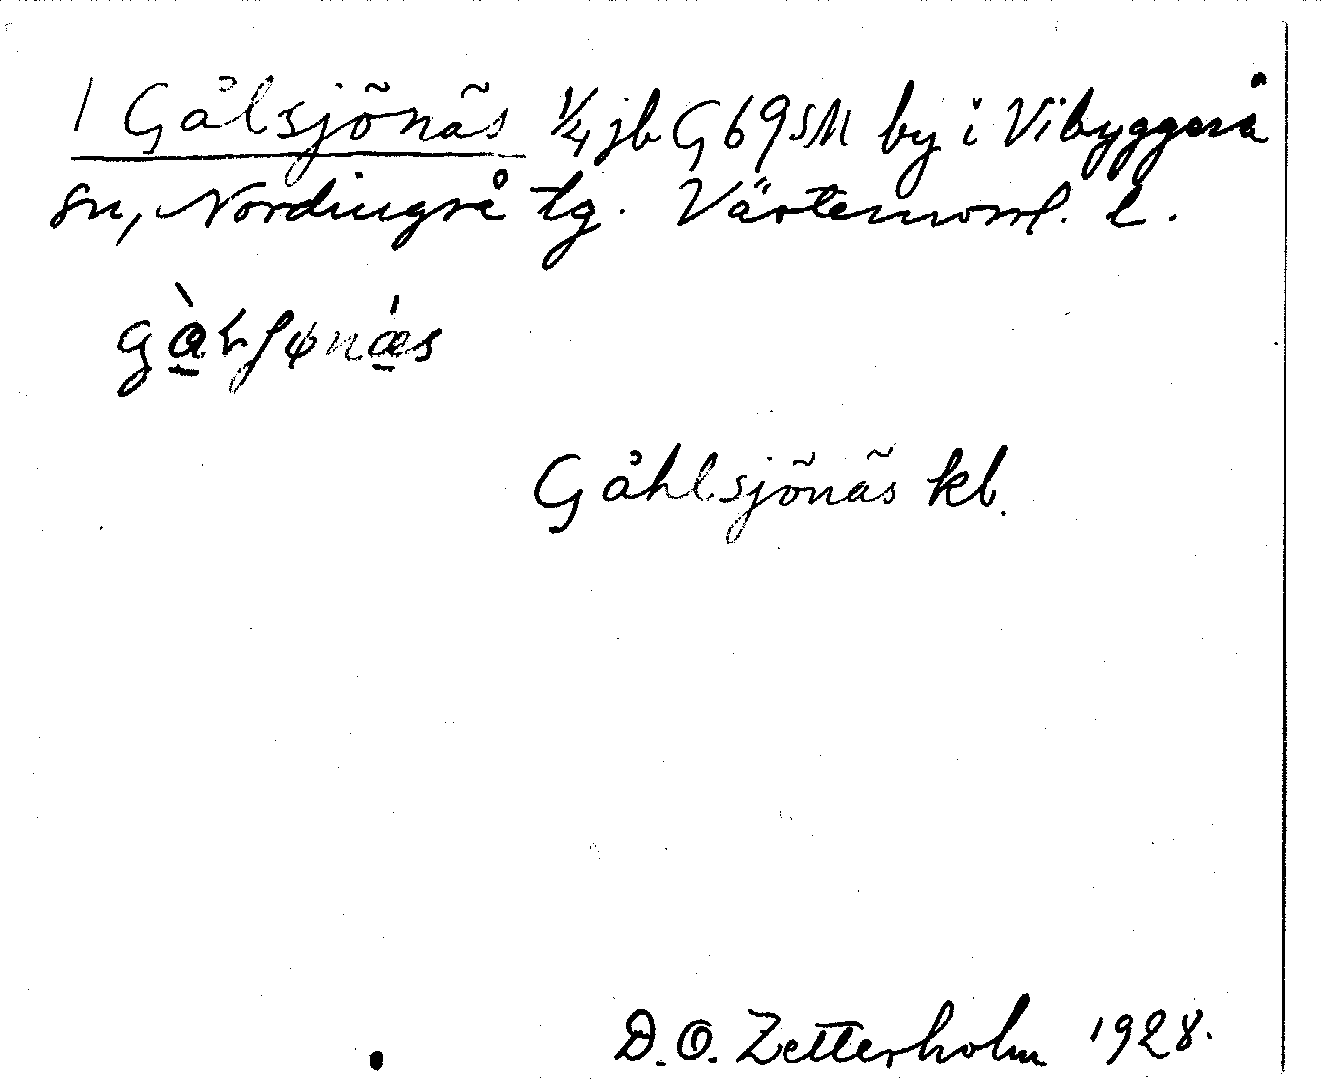 1 Gålsjönäs ¼ jb G 69 SM by i Vibyggerå
sn, Nordingrå tg. Västernorrl. l.
Gåhlsjönäs kb.
D. O. Zetterholm 1928.